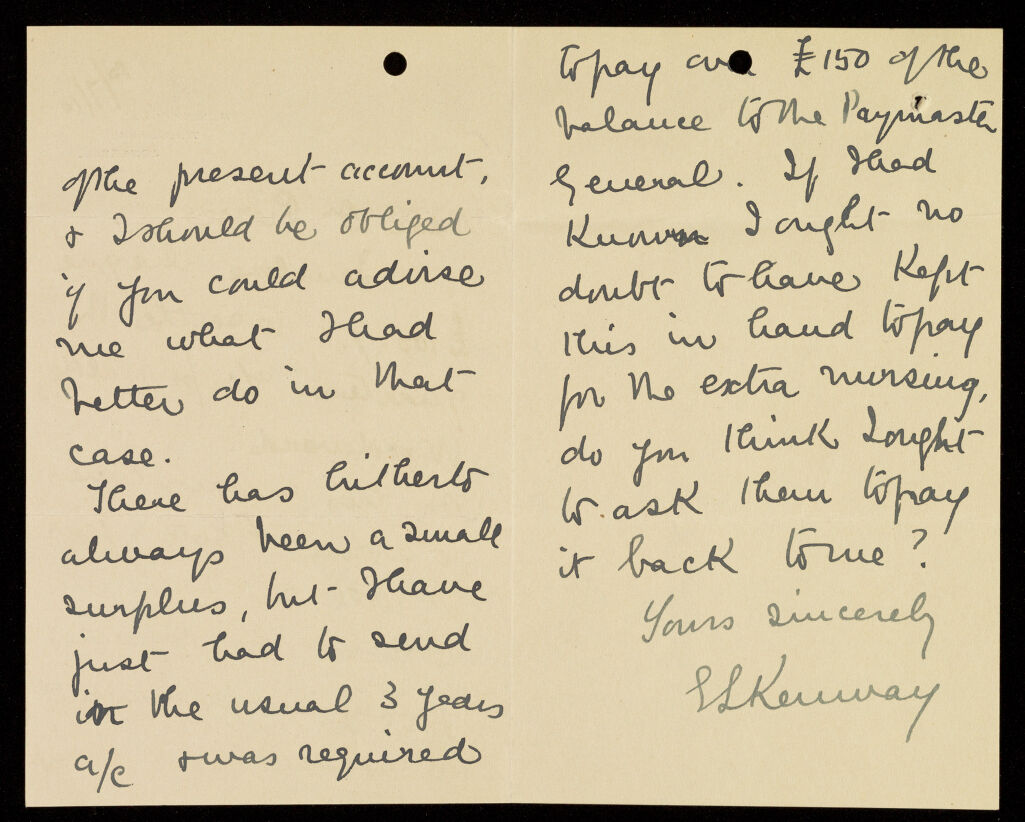 of the present account,
& I should be obliged
if you could advise
me what I had
better do in that
case.
There has hitherto
always been a small
surplus, but I have
just had to send
in the usual 3 years
a/c & was required
to pay over £150 of the
balance to the Paymaster
General. If I had
known I ought no
doubt to have kept
this in hand to pay
for the extra nursing,
do you think I ought
to ask them to pay
it back to me?
Yours sincerely
E L Kenway